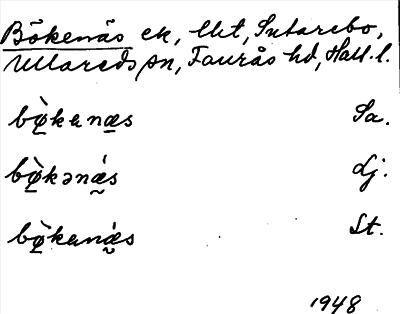 Bökenäs ek, lht, Sutarebo,
Ullareds sn, Faurås hd, Hall. l.
bø̱̀kenæ̱s Sa.
bø̱̀kənǽ̰s Lj.
bø̱̀kenǽ̰s St.
1948